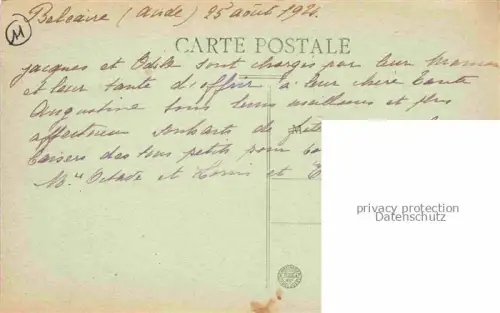 Belcaire (Aude) 25 août 192
11
CARTE POSTALE
Jacques et Odile sont chargés par leur maman
et leur tante d'offrir à leur chère tante
Augustine tous leurs meilleurs et plus
affectueux souhaits de fête
baisers des tous petits pour
et
privacy protection
Datenschutz